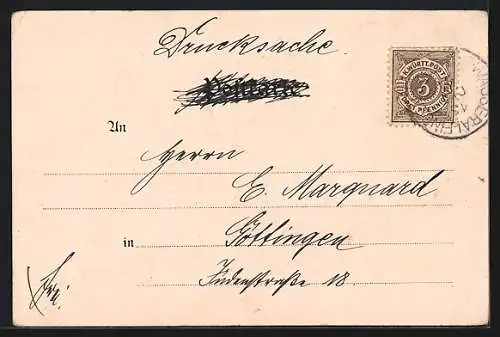 Drucksache.
Postkarte
K. WÜRTT. POST
3
DREI PFENNIG
WASSERALFI
An
Herrn
E. Marquard
in Göttingen
Jüdenstraße 18.
Frei.